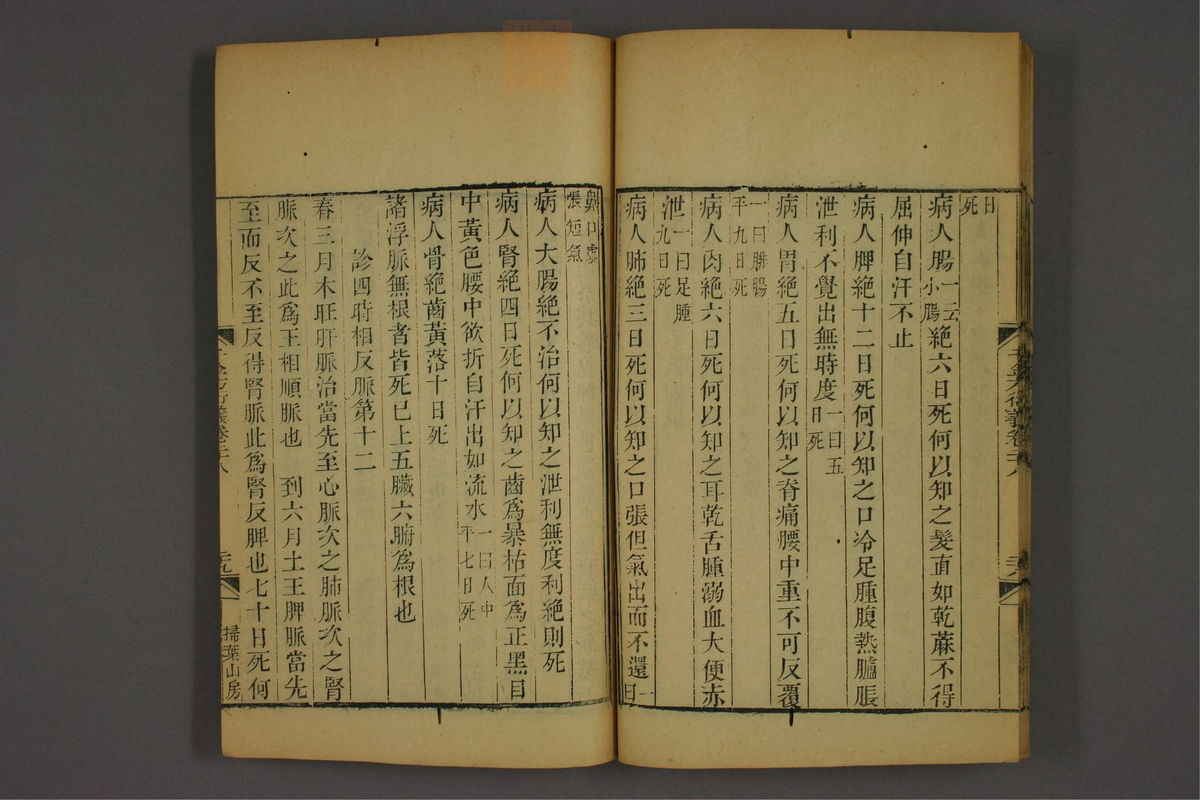 日死
病人腸一云小腸絕六日死何以知之髮直如乾蔴不得
屈伸自汗不止
病人脾絕十二日死何以知之口冷足腫腹熱臚脹
泄利不覺出無時度一曰五日死
病人胃絕五日死何以知之脊痛腰中重不可反覆
一曰腓腸平九日死
病人肉絕六日死何以知之耳乾舌腫溺血大便赤
泄一曰足腫九日死
病人肺絕三日死何以知之口張但氣出而不還一曰
鼻口虛張短氣
病人大腸絕不治何以知之泄利無度利絕則死
病人腎絕四日死何以知之齒爲暴枯面爲正黑目
中黃色腰中欲折自汗出如流水一曰人中平七日死
病人骨絕齒黃落十日死
諸浮脈無根者皆死已上五臟六腑爲根也
診四時相反脈第十二
春三月木旺肝脈治當先至心脈次之肺脈次之腎
脈次之此爲王相順脈也 到六月土王脾脈當先
至而反不至反得腎脈此爲腎反脾也七十日死何
千金方衍義卷二十八
掃葉山房